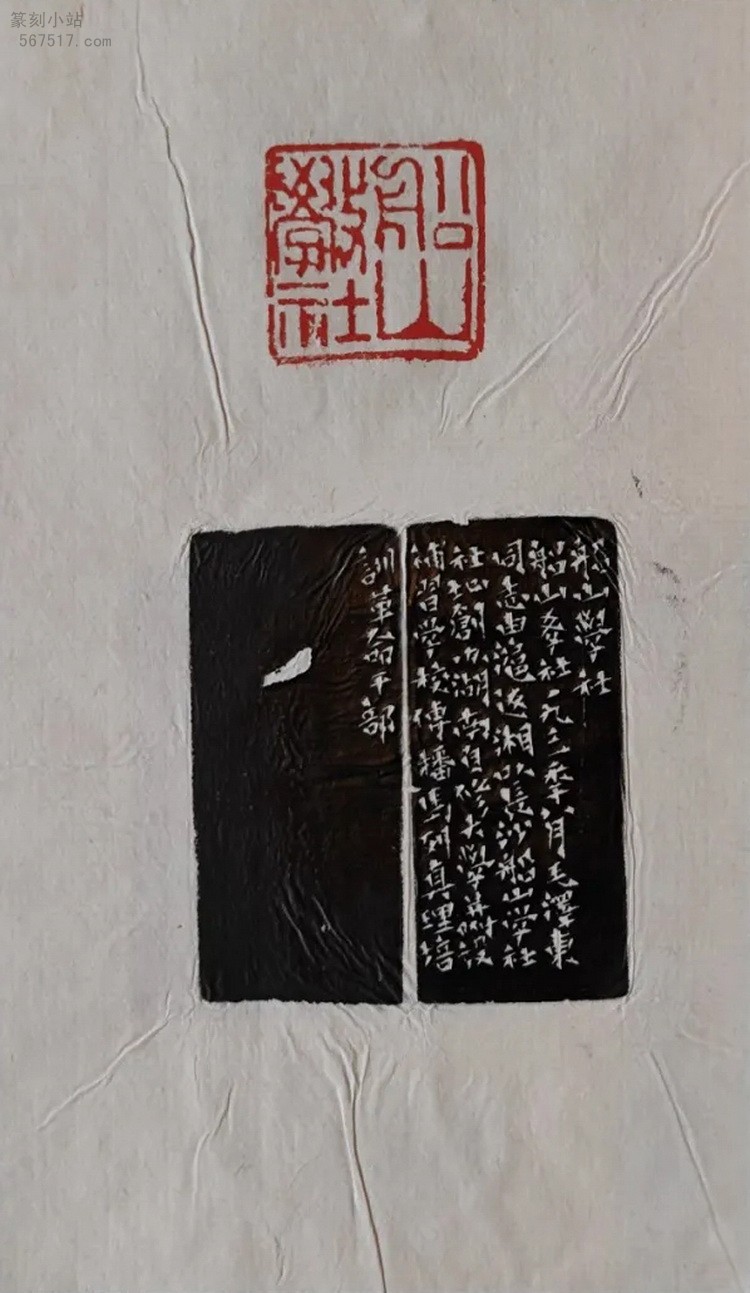 篆刻小站
567517.com
船山
斆社
船山學社
船山斈社一九二一秊八月毛澤東
同志由滬返湘以長沙船山学社
社址創办湖南自修大學并附設
補習学校傳播馬列真理培
訓革命干部